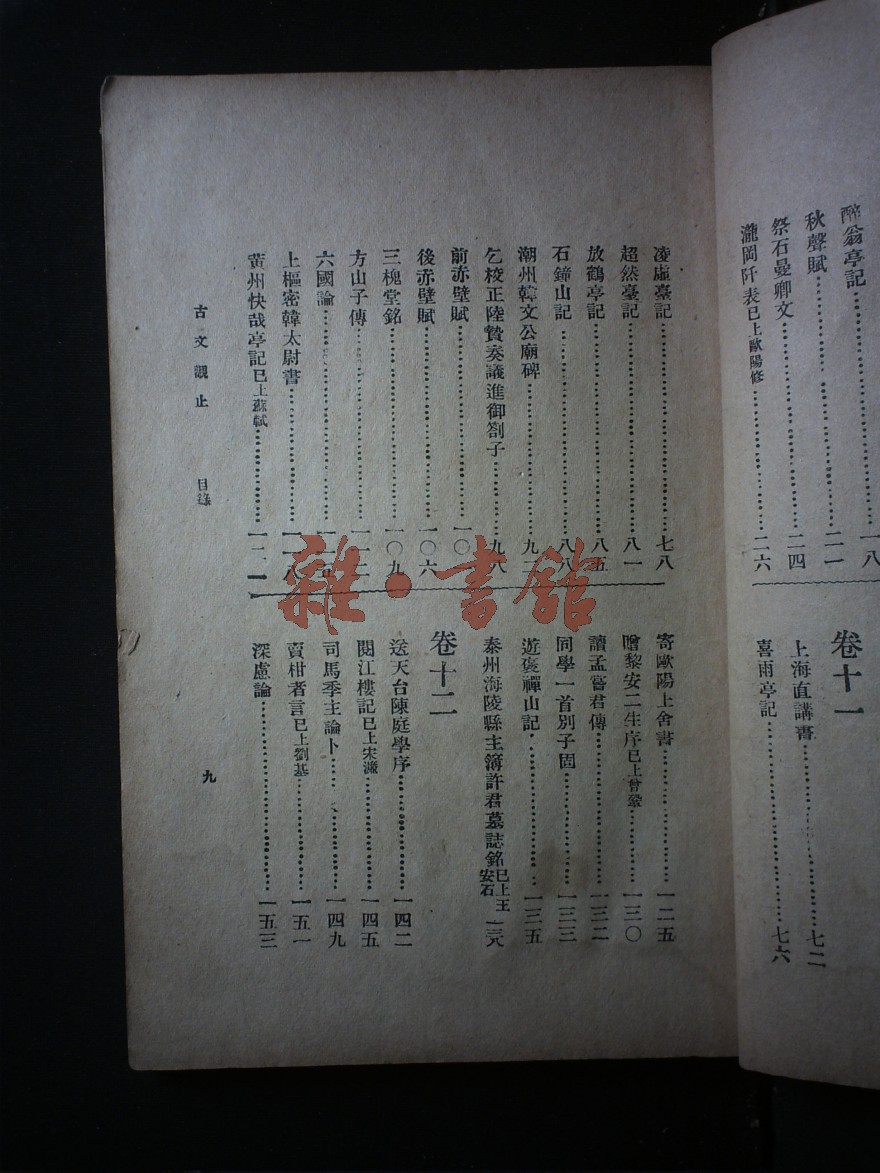 醉翁亭記……一八
秋聲賦……二一
祭石曼卿文……二四
瀧岡阡表已上歐陽修……二六
卷十一
上海直講書……七二
喜雨亭記……七六
凌虛臺記……七八
超然臺記……八一
放鶴亭記……八五
石鐘山記……八八
潮州韓文公廟碑……九二
乞校正陸贄奏議進御劄子……九八
前赤壁賦……一〇
後赤壁賦……一〇六
三槐堂銘……一〇九
方山子傳……一一二
六國論……一一五
上樞密韓太尉書……一一八
黃州快哉亭記已上蘇軾……一二一
寄歐陽上舍書……一二五
贈黎安二生序已上曾鞏……一三〇
讀孟嘗君傳……一三二
同學一首別子固……一三三
遊褒禪山記……一三五
泰州海陵縣主簿許君墓誌銘已上王安石 一三八
卷十二
送天台陳庭學序……一四二
閱江樓記已上宋濂……一四五
司馬季主論卜……一四九
賣柑者言已上劉基……一五一
深慮論……一五三
古文觀止 目錄
九
雜·書館